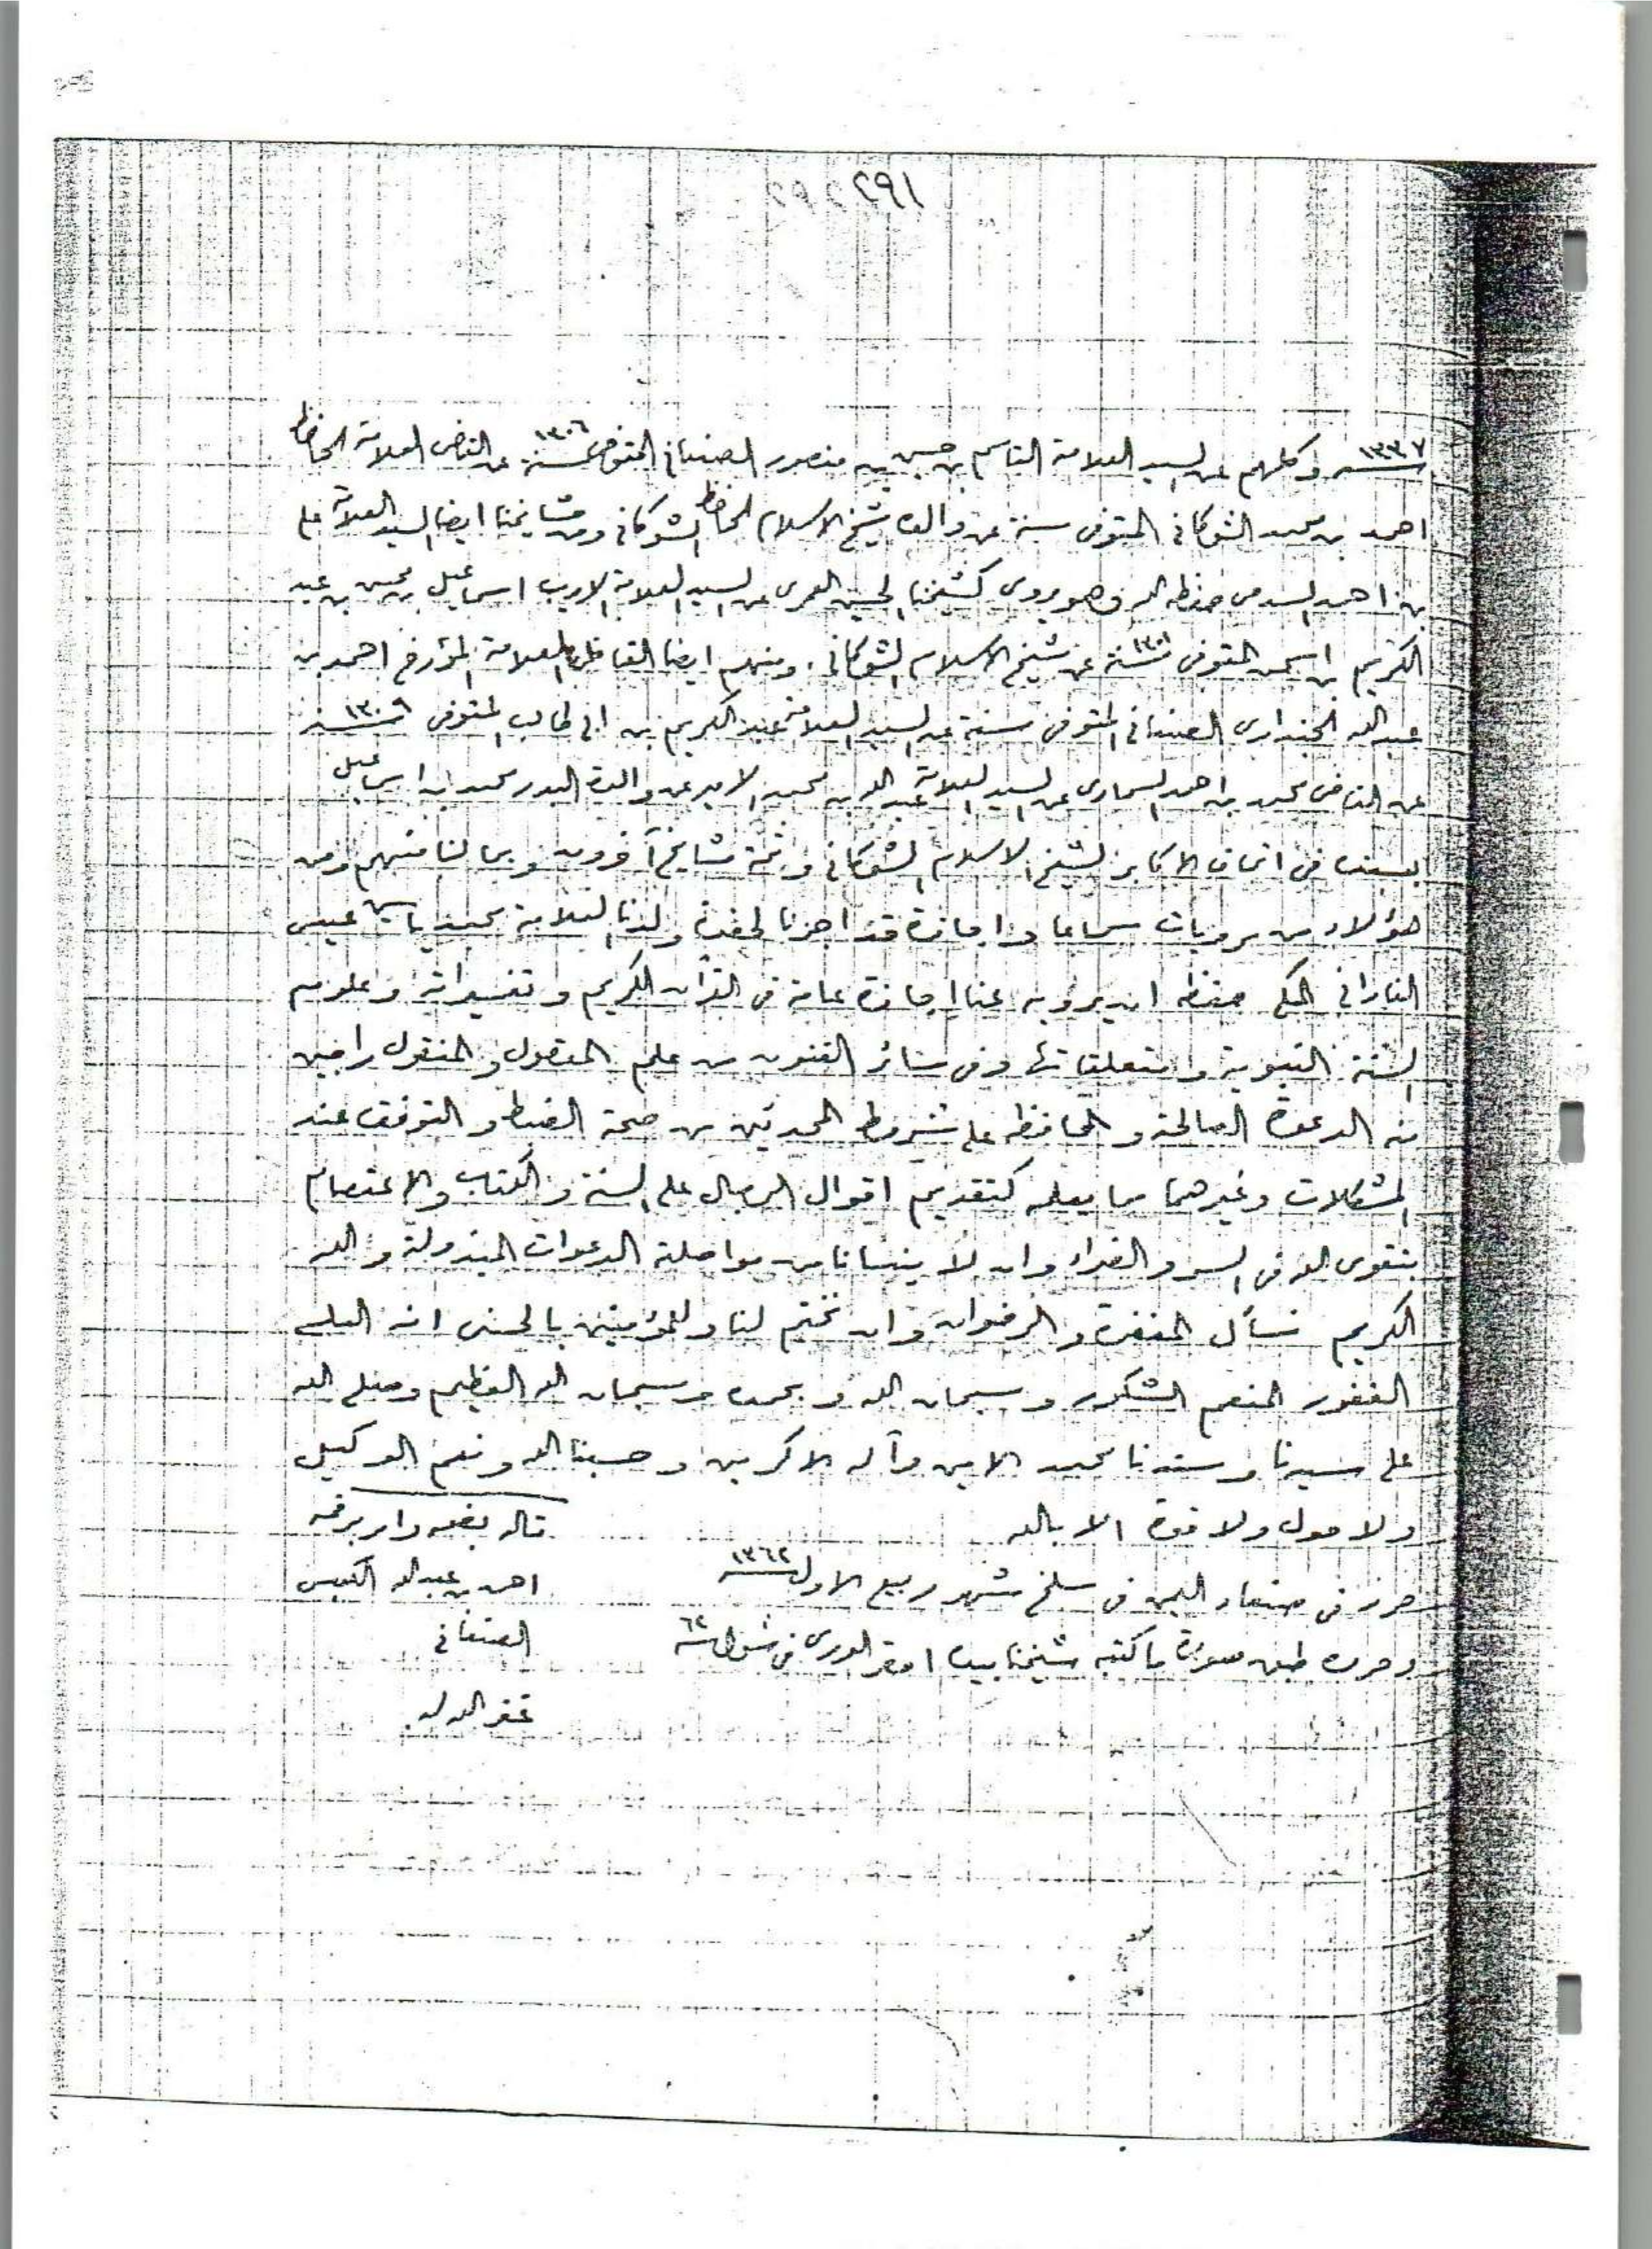 ٢٩١
سنة ١٣٣٧ وكلهم عن السيد العلامة القاسم بن حسين بن منصور الصنعاني المتوفى سنة ١٣٠٦ عن القاضي العلامة الحافظ
احمد بن محمد الشوكاني المتوفى سنة عن والده شيخ الاسلام الحافظ الشوكاني ومن مشايخنا ايضا السيد العلامة على
بن احمد السدمى حفظه الله وهو يروى كشيخنا الحسين العمرى عن السيد العلامة الاديب اسماعيل بن محسن بن عبد
الكريم بن اسحق المتوفى سنة ١٣٠١ عن شيخ الاسلام الشوكاني . ومنهم ايضا القاضى العلامة المؤرخ احمد بن
عبد الله الجندارى الصنعاني المتوفى سنة عن السيد العلامة عبد الكريم بن ابى طالب المتوفى سنة ١٣٠٩
عن القاضى محمد بن احمد السماوى عن السيد العلامة عبد الله بن محمد الامير عن والده البدر محمد بن اسماعيل
بسنده فى اتحاف الاكابر لشيخ الاسلام الشوكاني وثمة مشايخ آخرون وبما لنا منهم ومن
هؤلاء من مرويات سماعا واجازة قد اجزنا لحضرة ولدنا العلامة محمد ياسين عيسى
الفاداني المكى حفظه ان يرويه عنا اجازة عامة فى القرآن الكريم وتفسيراته وعلوم
السنة النبوية ومتعلقاتها وفى سائر الفنون من علم المعقول والمنقول راجين
منه الدعوة الصالحة والمحافظه على شروط المحدثين من صحة الضبط والتوقف عند
المشكلات وغيرهما مما يعله كتقديم اقوال الرجال على السنة والكتاب والاعتصام
بتقوى الله فى السر والضراء وان لا ينسانا من مواصلة الدعوات المبذولة والله
الكريم نسأل المغفرة والرضوان وان تختم لنا وللمؤمنين بالحسنى انه الملى
الغفور المنعم الشكور وسبحان الله وبحمده وسبحان الله العظيم وصلى الله
على سيدنا وسندنا محمد الامين وآله الاكرمين وحسبنا الله ونعم الوكيل
ولا حول ولا قوة الا بالله
قاله بفمه وامر برقمه
حرر فى صنعاء اليمن فى سلخ شهر ربيع الاول سنة ١٣٦٢
احمد بن عبد الله الكبسى
وحرره طبق صورة ما كتبه شيخنا بيده احقر الورى فى شوال سنة ٦٢
الصنعاني
غفر الله له